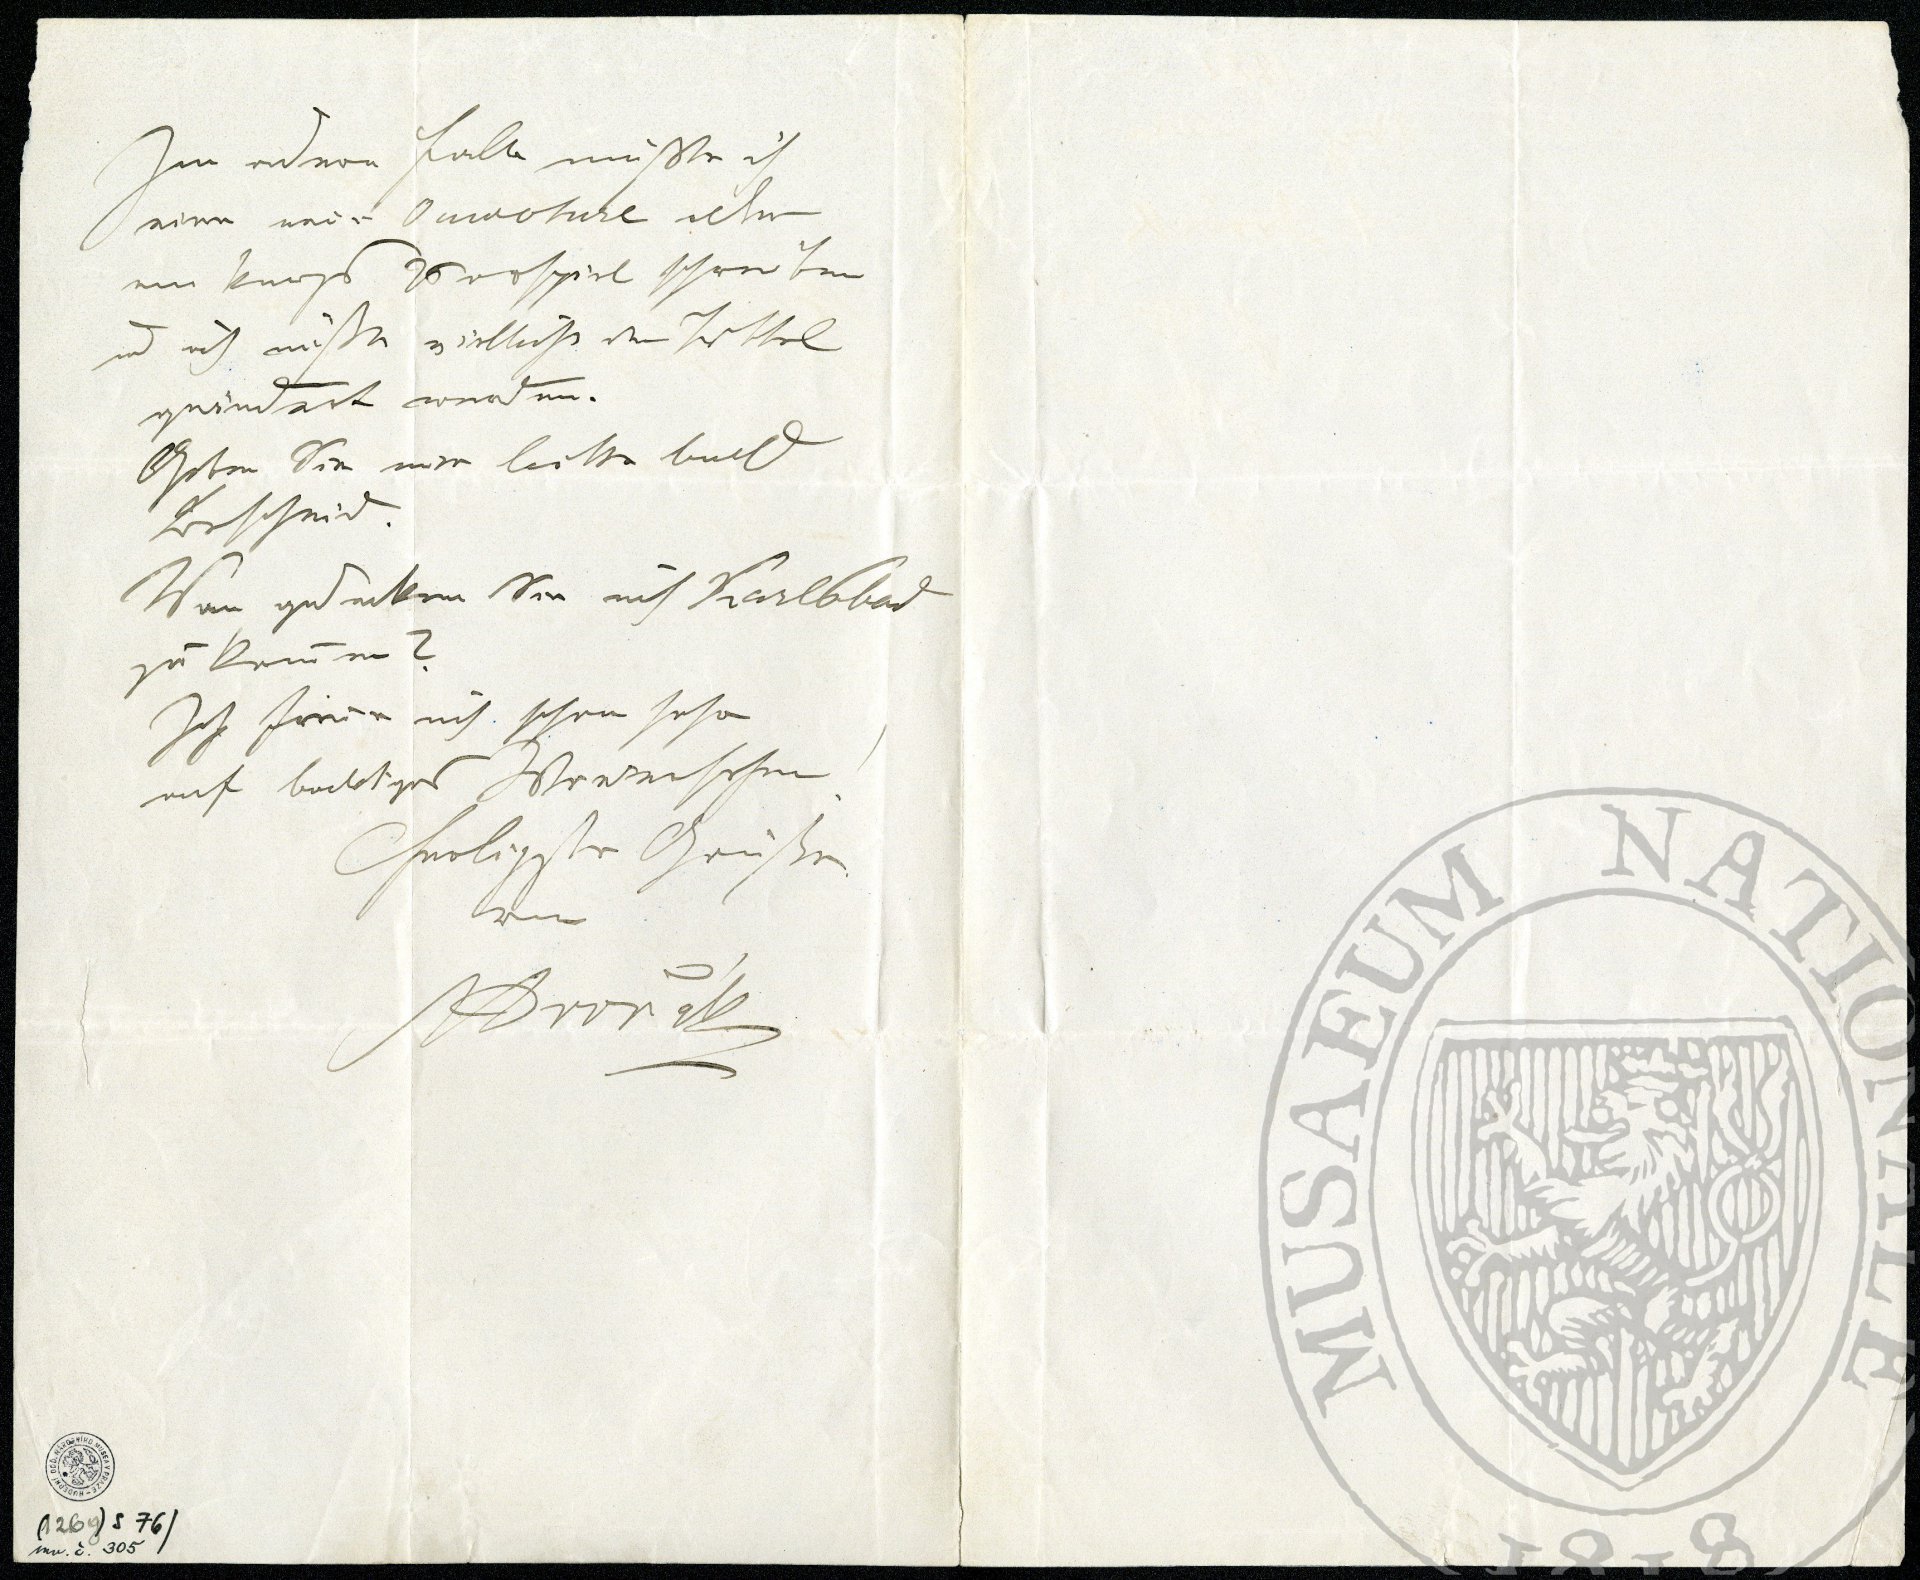 Im andern Falle müßte ich
eine neue Ouverture oder
ein kurzes Vorspiel schreiben
und ich müßte vielleicht der Tittel
geändert werden.
Geben Sie mir bitte bald
Bescheid.
Wan gedenken Sie nach Karlsbad
zu kommen?
Ich freue mich schon sehr
auf baldiges Wiedersehen!
Herzligste Grüße
von
ADvořák
HUDEBNÍ ODD. NÁRODNÍHO MUSEA V PRAZE
S 76/
inv. č. 305
MUSAEUM NATIONALE
1818